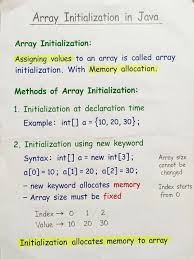 Array Initialization in Java
Array Initialization:
Assigning values to an array is called array
initialization. With Memory allocation.
Methods of Array Initialization:
1. Initialization at declaration time
Example: int[] a = {10, 20, 30};
2. Initialization using new keyword
Syntax: int[] a = new int[3];
a[0] = 10; a[1] = 20; a[2] = 30;
Array size
cannot be
changed
- new keyword allocates memory
- Array size must be fixed
Index starts
from 0
Index → 0 1 2
Value → 10 20 30
Initialization allocates memory to array